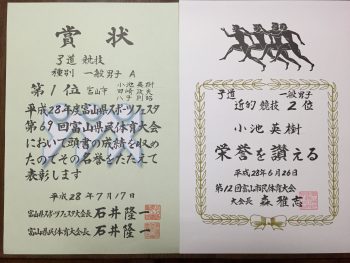 賞状
弓道 競技
種別 一般男子 A
第1位 富山市 小池英樹
平成28年度富山県民スポーツフェスタ
第69回富山県民体育大会
において頭書の成績を収め
たのでその名誉をたたえて
表彰します
平成28年7月17日
富山県民スポーツフェスタ会長 石井隆一
富山県民体育大会会長 石井隆一
弓道 一般男子
近的競技 2位
小池英樹
栄誉を讃える
平成28年6月26日
第12回富山市民体育大会
大会長 森雅志